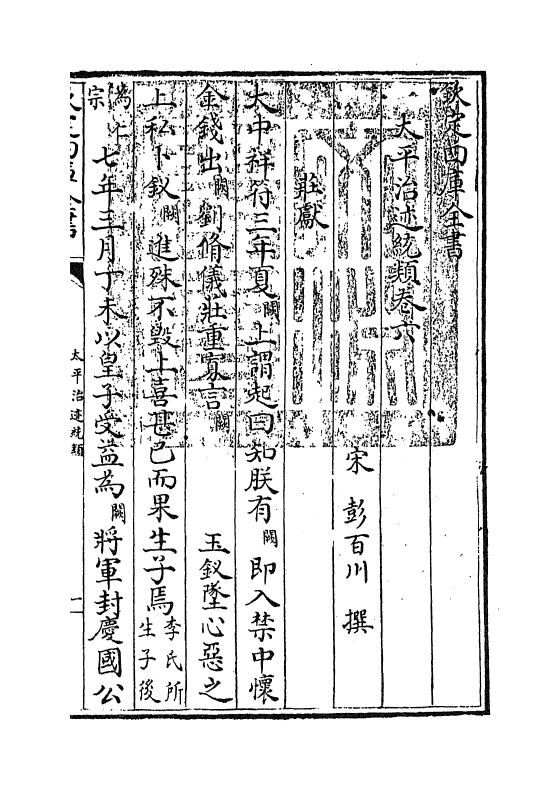 欽定四庫全書
太平治迹統類卷六
宋 彭百川 撰
莊獻
大中祥符三年夏闕上謂起曰知朕有闕即入禁中懷
金錢出闕劉脩儀莊重寡言闕 玉釵墜心惡之
上私卜釵闕進殊不毁上喜甚已而果生子焉李氏所生子後
為仁宗七年三月丁未以皇子受益為闕將軍封慶國公
太平治迹統類
一